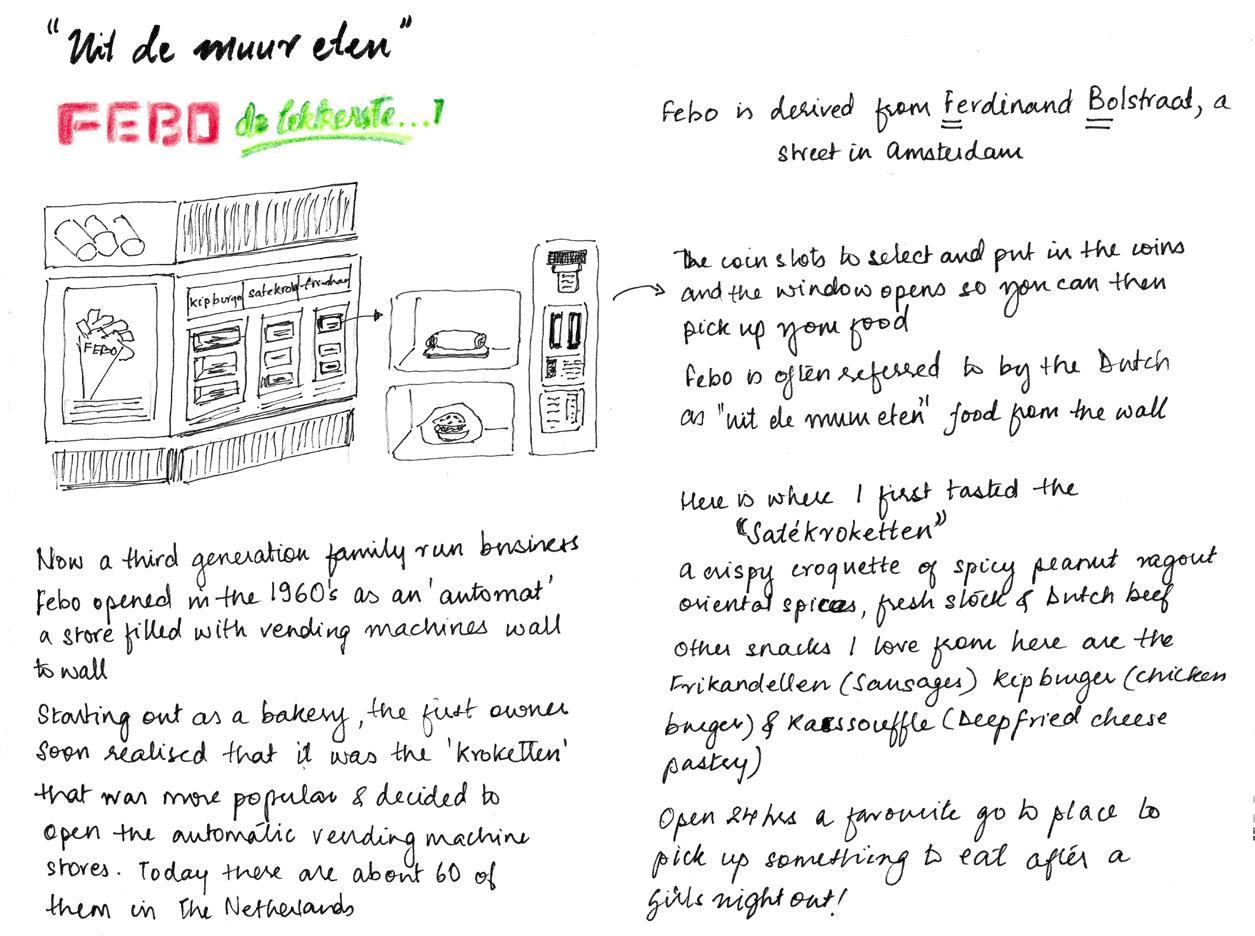 "Uit de muur eten"
FEBO de lekkerste...!
kipburger satékrok frikandel
FEBO
Now a third generation family run business
Febo opened in the 1960's as an 'automat'
a store filled with vending machines wall
to wall
Starting out as a bakery, the first owner
soon realised that it was the 'Kroketten'
that was more popular & decided to
open the automatic vending machine
stores. Today there are about 60 of
them in The Netherlands
Febo is derived from Ferdinand Bolstraat, a
street in Amsterdam
The coin slots to select and put in the coins
and the window opens so you can then
pick up your food
Febo is often referred to by the Dutch
as "uit de muur eten" food from the wall
Here is where I first tasted the
"Satékroketten"
a crispy croquette of spicy peanut ragout
oriental spices, fresh stock & Dutch beef
Other snacks I love from here are the
Frikandellen (Sausages) Kipburger (chicken
burger) & Kaassouffle (Deepfried cheese
pastry)
Open 24 hrs a favourite go to place to
pick up something to eat after a
Girls night out!